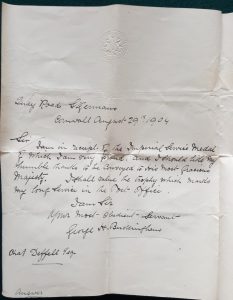 Quay Road St Germans
Cornwall August 29th 1904
Sir
I am in receipt of the Imperial Service Medal
of which I am very proud, and I should like my
humble thanks to be conveyed to his most Gracious
Majesty. I shall value the trophy which marks
my long service in the Post Office.
I am Sir
Your most Obedient Servant
George H Buckingham
Chas Deffell Esq
Answer